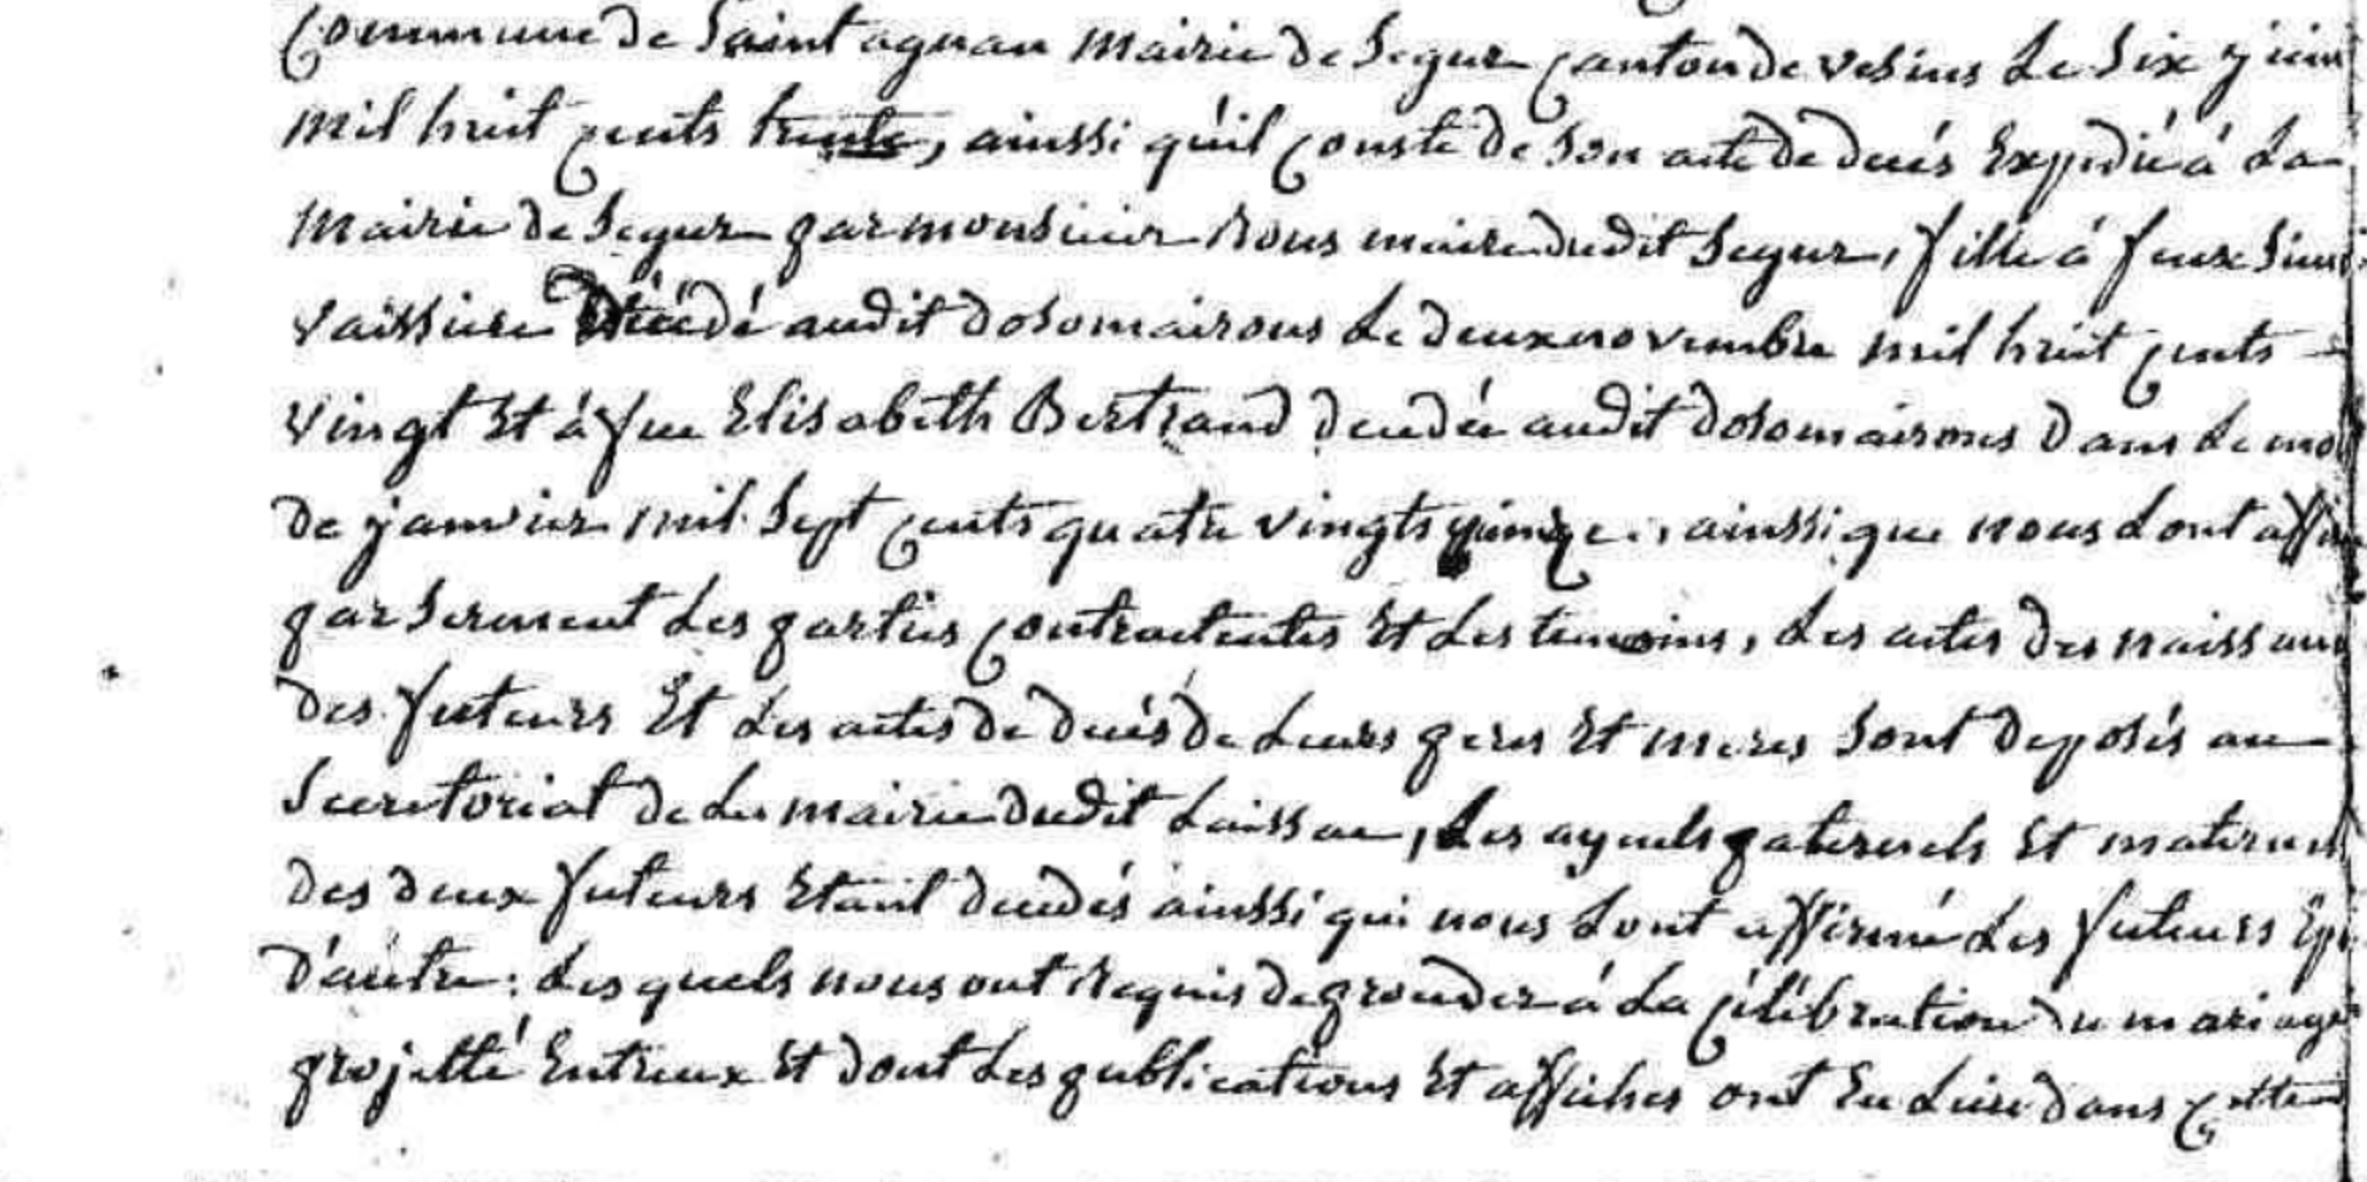 Commune de Saint agnan mairie de Segur canton de vesins le Six juin
mil huit cents trente, ainssi qu'il conste de Son acte de decés Expedié à La
mairie de Segur par monsieur Rous maire dudit Segur, fille à feux
vaissiere décédé audit dolomairous Le deux novembre mil huit cents
vingt Et à feu Elisabeth Bertrand decedée audit dolomairous dans Le moi
de janvier mil Sept cents quatre vingts quinze, ainssi que nous L'ont
par Serment Les parties contractentes Et Les temoins, Les actes des naissan
des futeurs Et Les actes de decés de Leurs peres Et meres Sont deposés au
Secretoriat de La mairie dudit Laissac, Les ayeuls paternels Et maternels
des deux futeurs Etant decedés ainssi que nous L'ont affirmé Les futeurs
d'autre: Lesquels nous ont Requis de proceder à La célébration du mariage
projetté Entreux Et dont Les publications Et affiches ont Eu Lieu dans cette